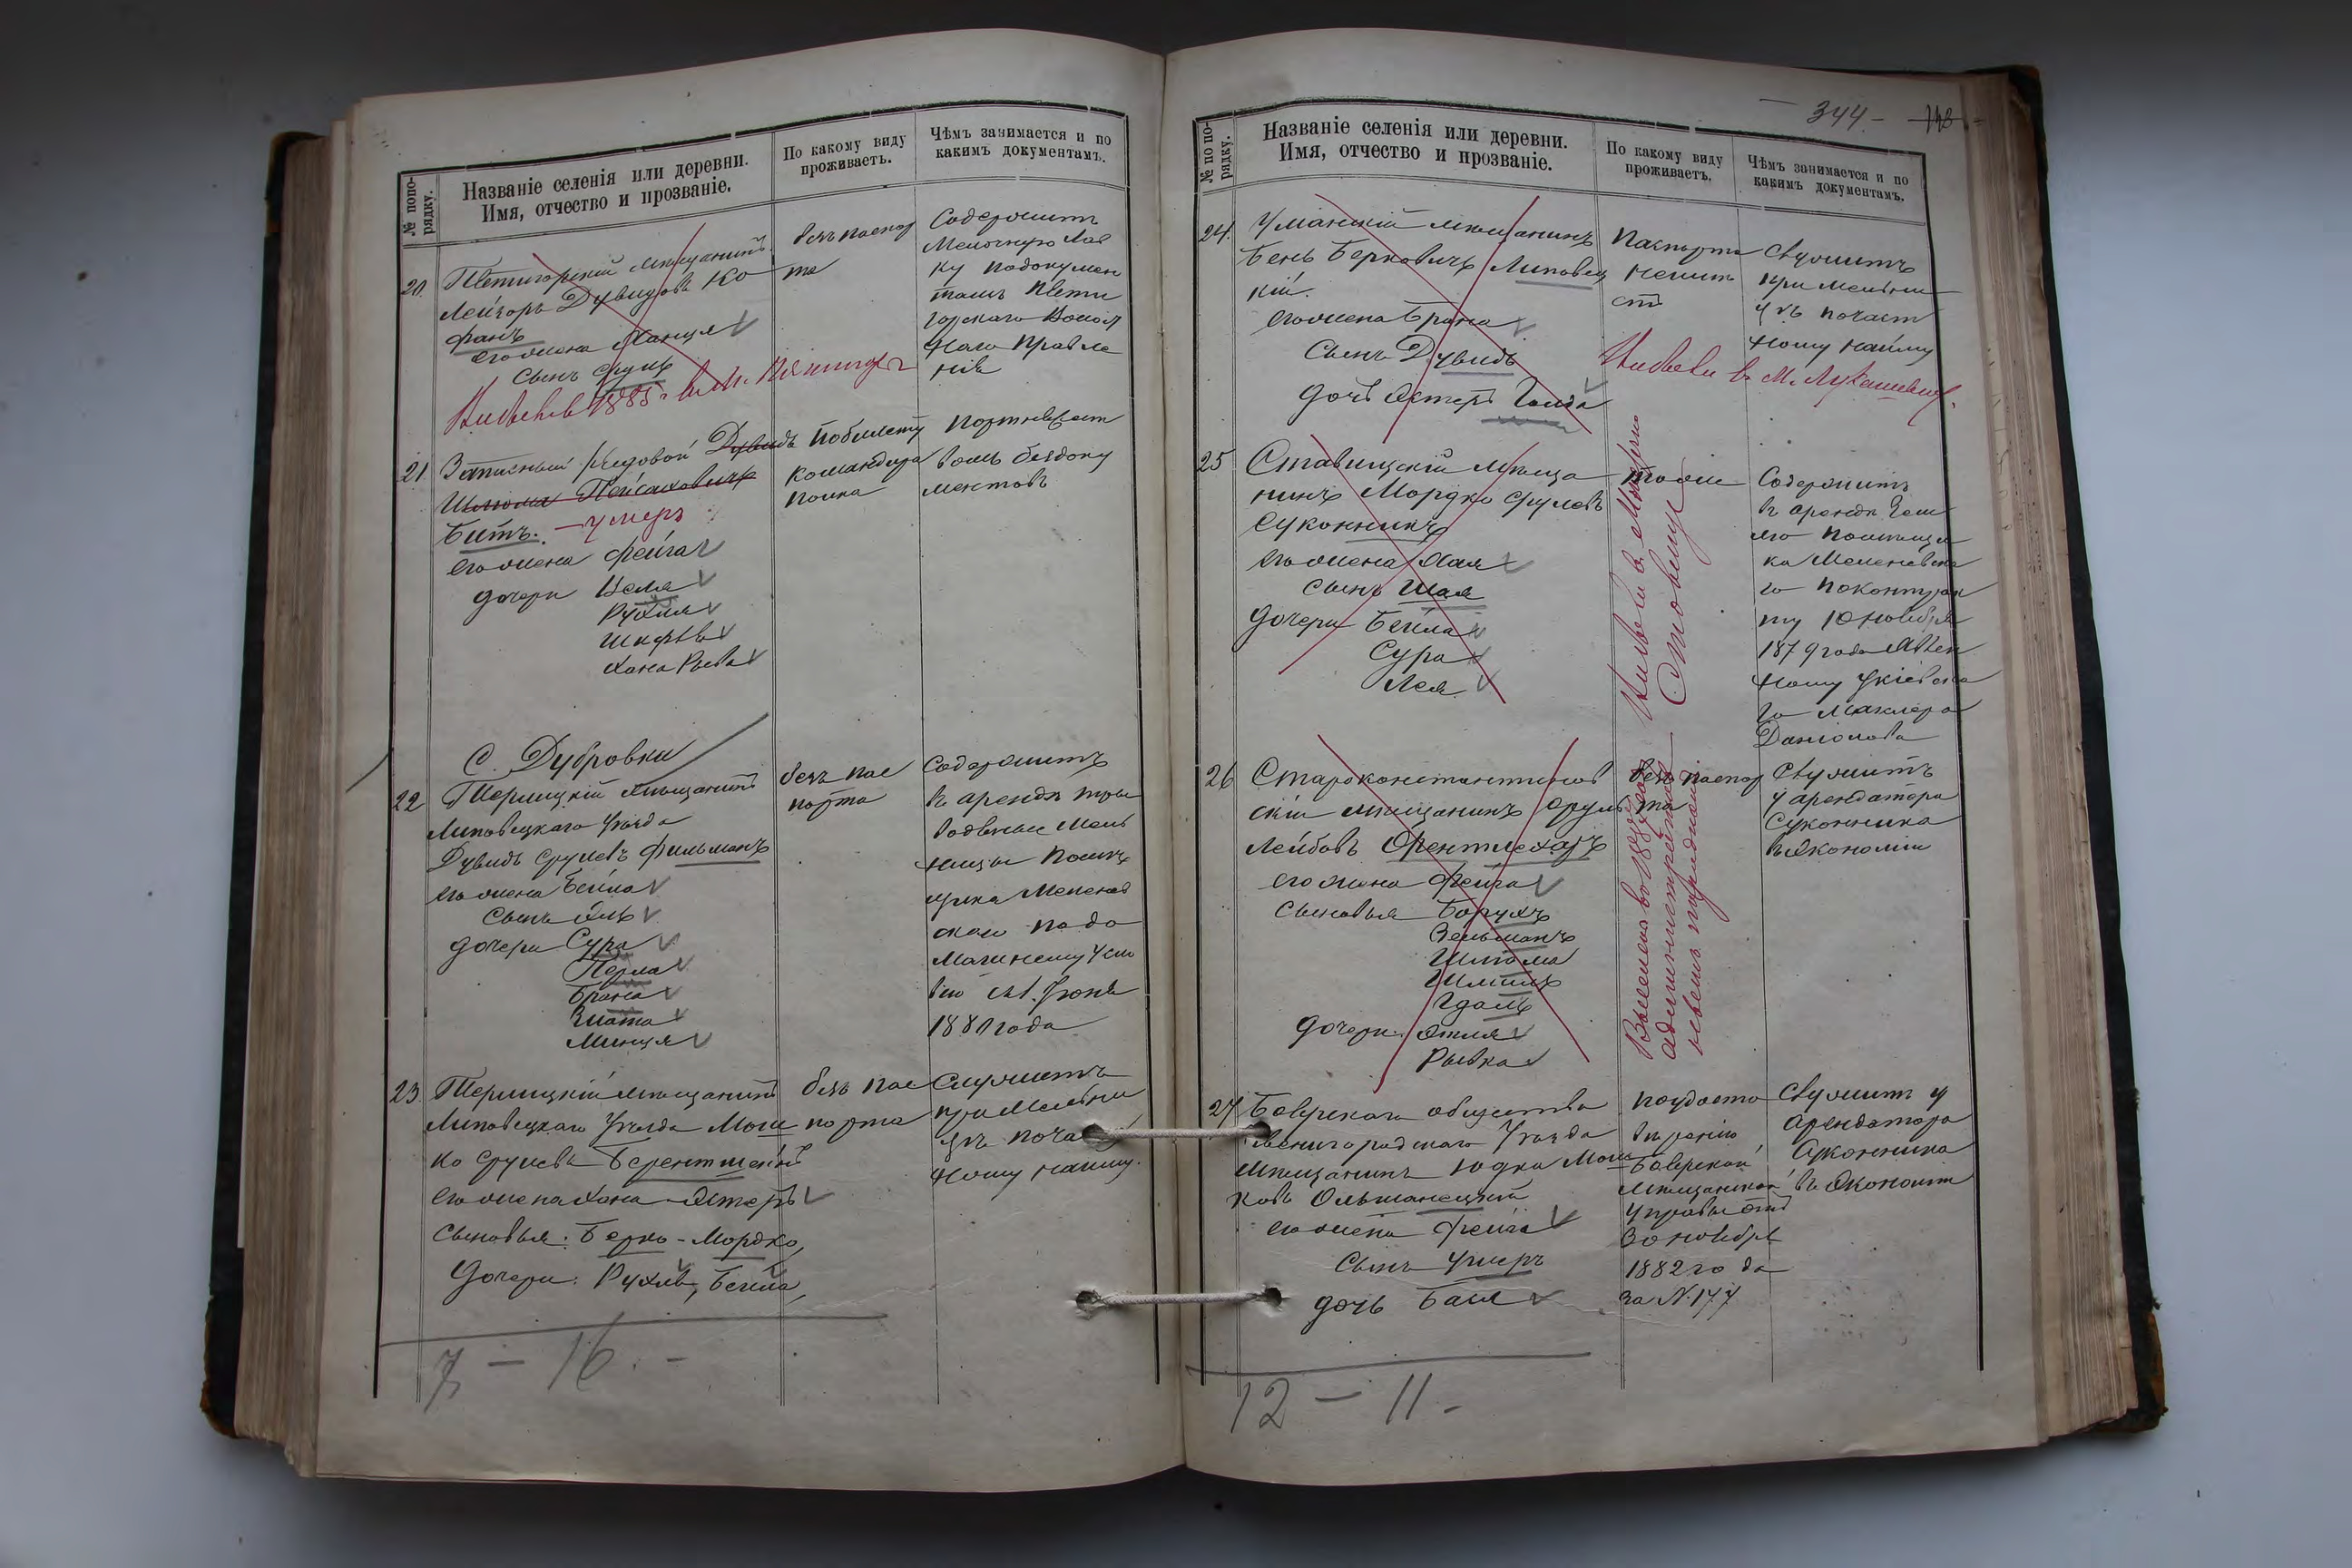 № попо-
рядку.
Названіе селенія или деревни.
Имя, отчество и прозваніе.
По какому виду
проживаетъ.
Чѣмъ занимается и по
какимъ документамъ.
20. Пятигорскій мѣщанинъ
Лейзоръ Дувидовъ Ко
фанъ
его жена Ханця
сынъ Сруль
безъ паспор
та
Содержитъ
Мелочную Лав
ку подокумен
тамъ Пяти
горскаго Волост
наго Правле
нія
21 Запасный рядовой Дувидъ
Шлиома Пейсаховичъ
Битъ. — умеръ
его жена Фейга
дочери Целя
Рухля
Шифра
Хана Рыва
по билету
командира
полка
Портняжест
вомъ бездоку
ментовъ
С. Дубровки
22 Терлицкій мѣщанинъ
Липовецкаго Уѣзда
Дувидъ Срулевъ Фильманъ
его жена Бейла
сынъ
дочери Сура
Перла
Брана
Злата
Минця
безъ пас
порта
содержитъ
въ арендѣ три
водяные Мель
ницы Помѣ
щика
по до
машнему усло
вію съ 1. Іюня
1880 года
23 Терлицкій мѣщанинъ
Липовецкаго Уѣзда Мош
ко Срулевъ Берентшейнъ
его жена Хана Эстеръ
сыновья: Берко - Мордко,
Дочери: Рухля, Бейла,
безъ пас
порта
Служитъ
при Мельни
цѣ по част
ному найму.
7 — 16. -
344 - 148 -
№ по по-
рядку.
Названіе селенія или деревни.
Имя, отчество и прозваніе.
По какому виду
проживаетъ.
Чѣмъ занимается и по
какимъ документамъ.
24. Уманскій мѣщанинъ
Бень Берковичъ Липовец
кій.
его жена Брана
Сынъ Дувидъ
дочь Эстеръ Голда
Паспорта
неимѣ
етъ
Служитъ
при мельни
цѣ по част
ному найму
25 Ставищскій мѣща
нинъ Мордко Срулевъ
Суконникъ
его жена Хая
сынъ Шая
дочери Бейла
Сура
Лея
тоже
Содержитъ
въ арендѣ Зем
лю Помѣщи
ка
го по контрак
ту 10 ноября
1879 года явлен
ному у Кіевска
го Маклера
26 Староконстантинов
скій мѣщанинъ Сруль
Лейбовъ
его жена Фейга
сыновья Борухъ
Зельманъ
Шлиома
Шмиль
Гдаль
дочери: Этля
Рывка
безъ паспор
та
Служитъ
у арендатора
Суконника
въ Экономіи
Выселенъ въ
административ
нымъ порядкомъ
27 Боярскаго общества
Звенигородскаго Уѣзда
мѣщанинъ Юдка Мош
ковъ Ольшанецкій
его жена Фейга
сынъ Умеръ
дочь Бася
по удосто
вѣренію
Боярской
мѣщанской
управы отъ
30 ноября
1882 года
за № 177
Служитъ у
арендатора
Суконника
въ Экономіи
12 — 11. -